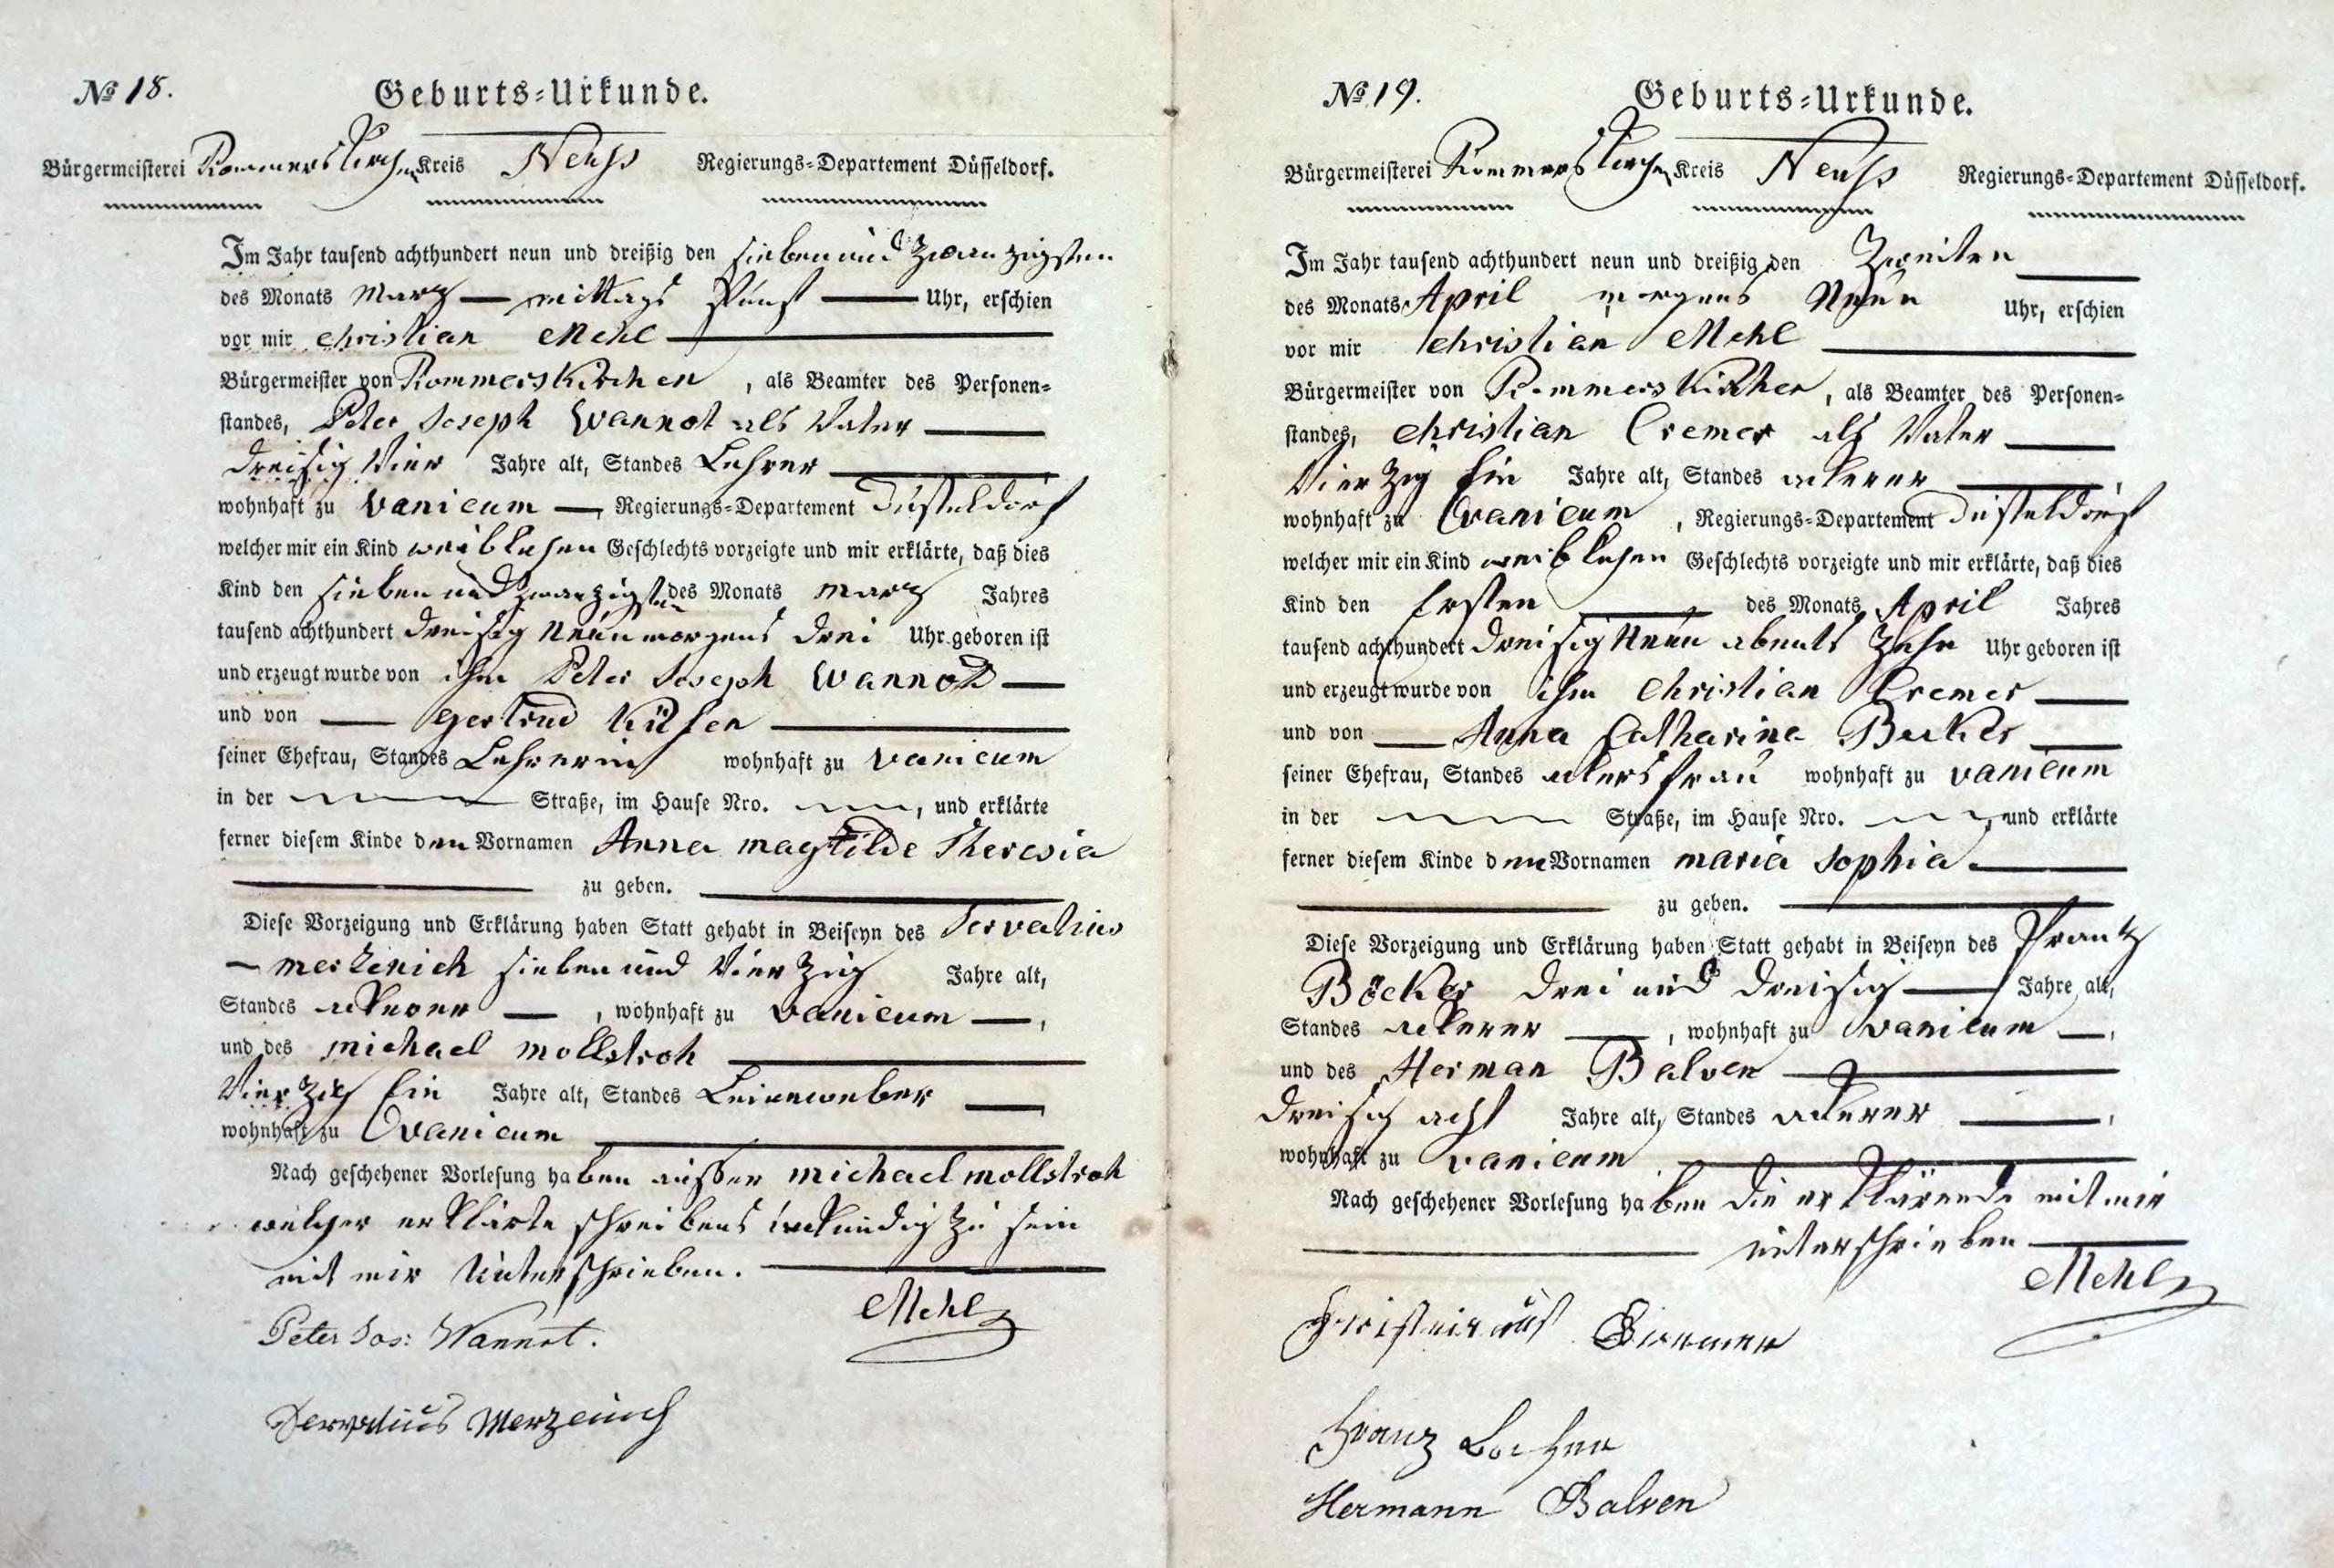 № 18.
Geburts-Urkunde.
Bürgermeisterei Rommerskirchen Kreis Neuss Regierungs-Departement Düsseldorf.
Im Jahr tausend achthundert neun und dreißig den sieben und zwanzigsten
des Monats Marz — mittags fünf — Uhr, erschien
vor mir Christian Mehl
Bürgermeister von Rommerskirchen, als Beamter des Personen-
standes, Peter Joseph Wannot als Vater
dreisig Vier Jahre alt, Standes Lehrer
wohnhaft zu Vanicum —, Regierungs-Departement Düsseldorf
welcher mir ein Kind weiblichen Geschlechts vorzeigte und mir erklärte, daß dies
Kind den sieben und zwanzigsten des Monats Marz Jahres
tausend achthundert dreisig Neun morgens drei Uhr geboren ist
und erzeugt wurde von ihm Peter Joseph Wannot —
und von — Gertrud
seiner Ehefrau, Standes Lehrerin wohnhaft zu Vanicum
in der Straße, im Hause Nro. , und erklärte
ferner diesem Kinde den Vornamen Anna Theresia
zu geben.
Diese Vorzeigung und Erklärung haben Statt gehabt in Beiseyn des Servatius
— Merzenich sieben und Vierzig Jahre alt,
Standes Ackerer —, wohnhaft zu Vanicum —,
und des Michael Mollstroh
Vierzig Ein Jahre alt, Standes Leineweber —
wohnhaft zu Vanicum
Nach geschehener Vorlesung haben ausser Michael Mollstroh
welcher erklärte schreibens unkundig zu sein
mit mir Unterschrieben.
Mehl
Peter Jos: Wannot.
Servatius Merzenich
№ 19.
Geburts-Urkunde.
Bürgermeisterei Rommerskirchen Kreis Neuss Regierungs-Departement Düsseldorf.
Im Jahr tausend achthundert neun und dreißig den Zweiten
des Monats April morgens Neun Uhr, erschien
vor mir Christian Mehl
Bürgermeister von Rommerskirchen, als Beamter des Personen-
standes, Christian Cremer als Vater
Vierzig Ein Jahre alt, Standes Ackerer
wohnhaft zu Vanicum, Regierungs-Departement Düsseldorf
welcher mir ein Kind weiblichen Geschlechts vorzeigte und mir erklärte, daß dies
Kind den Ersten — des Monats April Jahres
tausend achthundert dreisig Neun abends Zehn Uhr geboren ist
und erzeugt wurde von ihm Christian Cremer
und von — Anna Catharina
seiner Ehefrau, Standes Ackersfrau wohnhaft zu Vanicum
in der Straße, im Hause Nro. , und erklärte
ferner diesem Kinde den Vornamen Maria Sophia
zu geben.
Diese Vorzeigung und Erklärung haben Statt gehabt in Beiseyn des Frantz
Böcker drei und dreisig — Jahre alt,
Standes Ackerer —, wohnhaft zu Vanicum —,
und des Herman Balven
dreisig acht Jahre alt, Standes Ackerer —,
wohnhaft zu Vanicum
Nach geschehener Vorlesung haben die erklärende mit mir
unterschrieben
Mehl
Franz
Hermann Balven